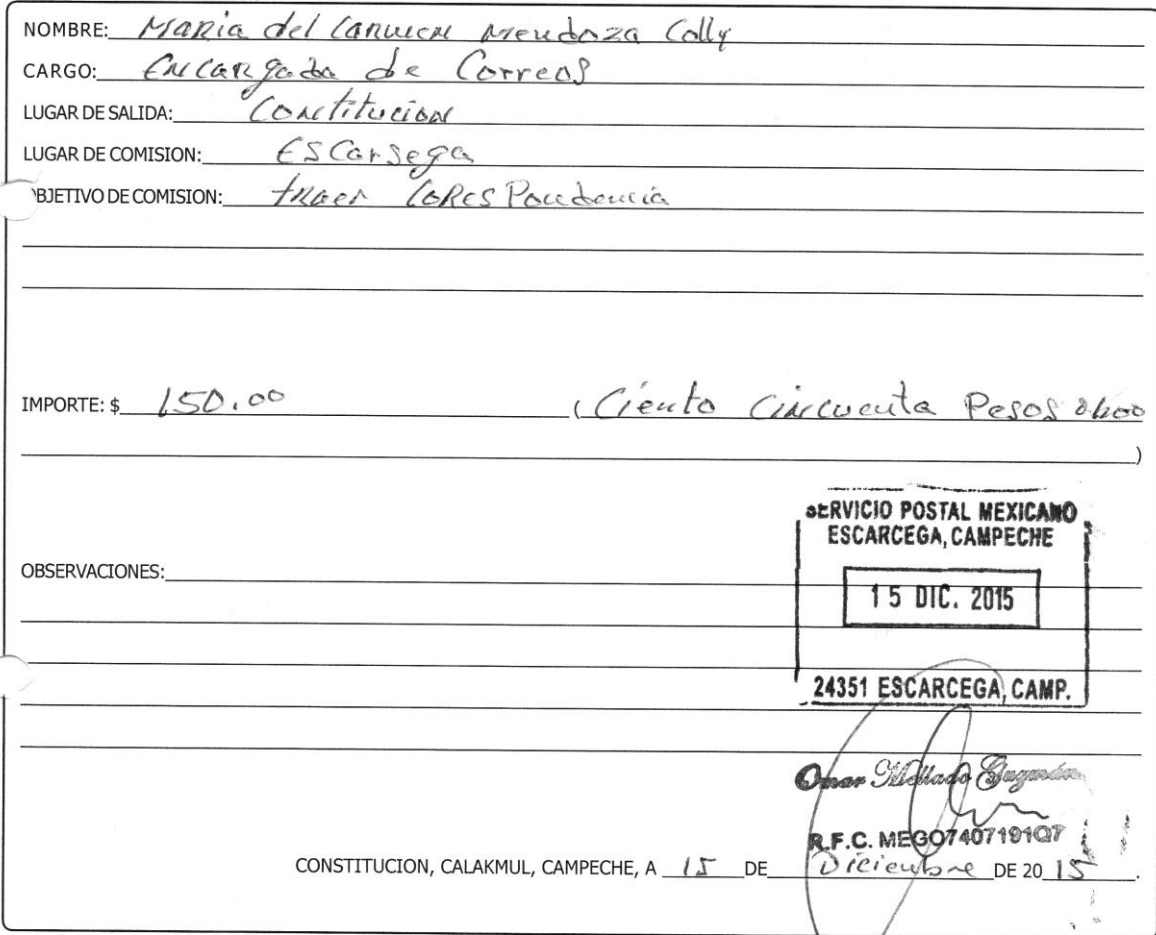 NOMBRE: Maria del Carmen Mendoza Colly
CARGO: Encargada de Correos
LUGAR DE SALIDA: Constitucion
LUGAR DE COMISION: ESCarsega
OBJETIVO DE COMISION: traer CoResPondencia
IMPORTE: $ 150.00 ( Ciento Cincuenta Pesos
)
SERVICIO POSTAL MEXICANO
ESCARCEGA, CAMPECHE
OBSERVACIONES:
15 DIC. 2015
24351 ESCARCEGA, CAMP.
Omar Mellado Guzmán
R.F.C. MEGO7407191Q7
CONSTITUCION, CALAKMUL, CAMPECHE, A 15 DE Diciembre DE 20 15.